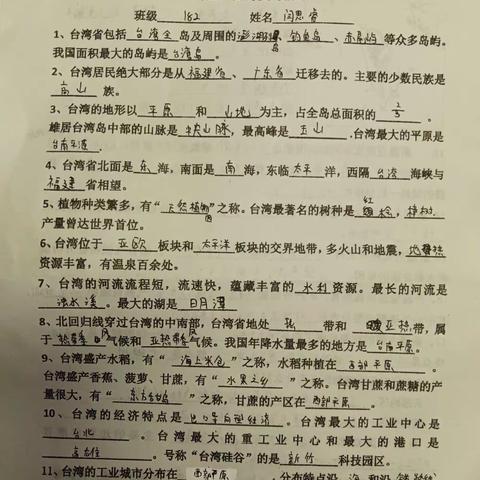 班级 182 姓名 闫思睿
1、台湾省包括 台湾全 岛及周围的 澎湖列岛、钓鱼岛、赤尾屿 等众多岛屿。
我国面积最大的岛屿是 台湾岛。
2、台湾居民绝大部分是从 福建省、广东省 迁移去的。主要的少数民族是
高山 族。
3、台湾的地形以 平原 和 山地 为主，占全岛总面积的 2/3 。
雄居台湾岛中部的山脉是 中央山脉，最高峰是 玉山 .台湾最大的平原是
台南平原.
4、台湾省北面是 东 海，南面是 南 海，东临 太平 洋，西隔 台湾 海峡与
福建 省相望。
5、植物种类繁多，有“ 天然植物园 ”之称。台湾最著名的树种是 红桧，樟树.
产量曾达世界首位。
6、台湾位于 亚欧 板块和 太平洋 板块的交界地带，多火山和地震，地热
资源丰富，有温泉百余处。
7、台湾的河流流程短，流速快，蕴藏丰富的 水利 资源。最长的河流是
浊水溪。最大的湖是 日月潭
8、北回归线穿过台湾的中南部，台湾省地处 热 带和 亚热 带，属
于 热带季风 气候和 亚热带季风 气候。我国年降水量最多的地方是
9、台湾盛产水稻，有“ 海上米仓 ”之称，水稻种植在 西部平原 。
台湾盛产香蕉、菠萝、甘蔗，有“ 水果之乡 ”之称。台湾甘蔗和蔗糖的产
量很大，有“ 东方甜岛 ”之称，甘蔗的产区在 西部平原 。
10、台湾的经济特点是 出口导向型经济 。台湾最大的工业中心是
台北 。台湾最大的重工业中心和最大的港口是
高雄 。号称“台湾硅谷”的是 新竹 科技园区。
11、台湾的工业城市分布在 西部平原 ，分布特点沿 海 和沿 铁路线